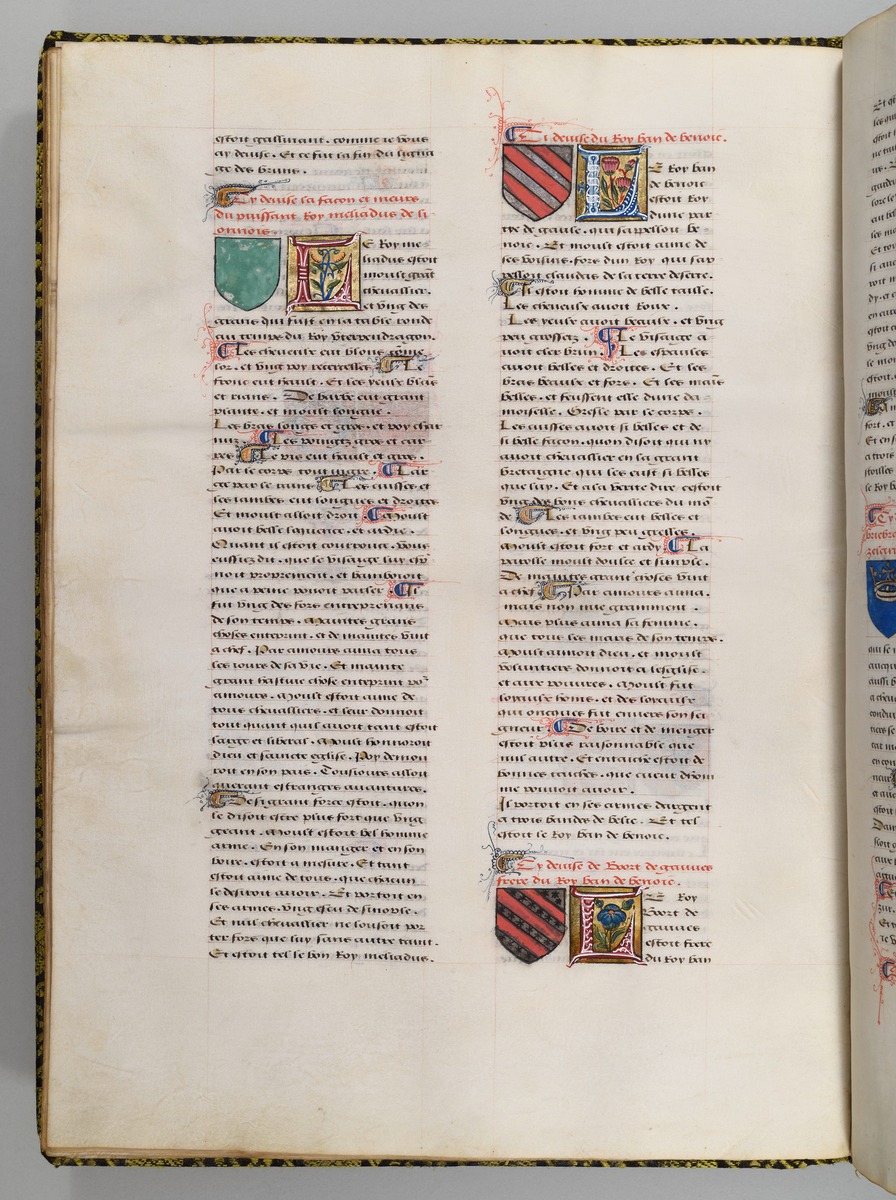 estoit gallurant. comme ie vous
ay deuise. Et ce fut la fin du ligna
ge des bruns.
Cy deuise la facon et meurs
du puissant Roy meliadus de li
onnois.
Le Roy me
liadus estoit
moult grāt
cheuallier.
et vng des
grans qui fust en la table ronde
au temps du Roy vterpendragon.
Les cheueulx eut blons come
lor. et vng poy recercelles. Le
front eut hault. Et les yeulx blās
et rians. De barbe eut grant
plante. et moult longue.
Les bras longs et gros. et poy char
nuz. Les poingtz gros et car
res. Le vis eut hault et gros.
Par le corps tout maigre. Lar
ge par le rains. Les cuisses et
les iambes eut longues et droites
Et moult alloit droit. Moult
auoit belle loquence. et ardie.
Quant il estoit courrouce. Vous
eussiez dit. que le visaige luy
proprement. et
que a peine pouoit parler. Il
fut vng des fors entreprenans
de son temps. Maintes grans
choses entreprint. et de maintes vint
a chef. Par amours ama tous
les iours de sa vie. Et mainte
grant hastiue chose entreprint po2
amours. Moult estoit ame de
tous cheualliers. et leur donnoit
tout quant quil auoit tant estoit
large et liberal. Moult honnoroit
dieu et saincte eglise. Poy demou
roit en son pais. Tousiours alloit
querant estranges auantures.
De si grant force estoit. quon
le disoit estre plus fort que vng
geant. Moult estoit bel homme
arme. En son manger et en son
boire. estoit a mesure. Et tant
estoit ame de tous. que chacun
le desiroit auoir. Et portoit en
ses armes. vng escu de sinople.
Et nul cheuallier ne losoit por
ter fors que luy sans autre taint.
Et estoit tel le bon Roy meliadus.
Ci deuise du Roy ban de benoic.
Le Roy ban
de benoic
estoit Roy
dune par
tye de gaule. qui sappelloit be
noic. Et moult estoit aime de
ses voisins. fors dun Roy qui sap
pelloit claudas de la terre deserte.
Il estoit homme de belle taille.
Les cheueulx auoit Roux.
Les yeulx auoit beaulx. et vng
peu grossetz. Le visaige a
uoit cler brun. Les espaules
auoit belles et droites. Et les
bras beaulx et fors. Et les maīs
belles. et feussent elle dune da
moiselle. Gresle par le corps.
Les cuisses auoit si belles et de
si belle facon. quon disoit qui ny
auoit cheuallier en la grant
bretaigne qui les eust si belles
que luy. Et a la verite dire cestoit
vng des bons cheualliers du mō
de. Les iambes eut belles et
longues. et vng peu grelles.
Moult estoit fort et ardy. La
parolle moult doulce et simple.
De maintes grant choses vint
a chef. Par amours ama.
mais non mie gramment.
Mais plus ama sa femme.
que tous les maris de son temps.
Moult amoit dieu. et moult
voluntiers donnoit a leglise.
et aux pouures. Moult fut
loyaulx homs. et des loyaulx
qui oncques fut enuers son sei
gneur. De boire et de menger
estoit plus raisonnable que
nul autre. Et entache estoit de
bonnes teiches. que cueur dhom
me pouuoit auoir.
Il portoit en ses armes dargent
a trois bandes de belic. Et tel
estoit le Roy ban de benoic.
Cy deuise de Boort de gauues
frere du Roy ban de benoic.
Le Roy
Boort de
gauues
estoit frere
du Roy ban